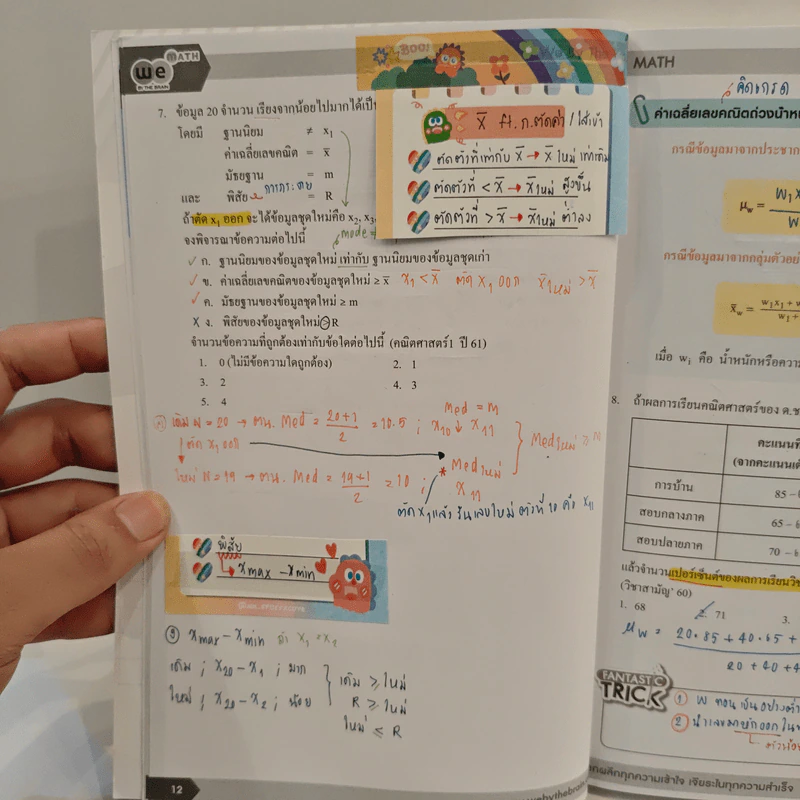 we MATH
BY THE BRAIN
7. ข้อมูล 20 จำนวน เรียงจากน้อยไปมากได้เป็น
โดยมี ฐานนิยม ≠ x₁
ค่าเฉลี่ยเลขคณิต = x̄
มัธยฐาน = m
และ พิสัย = R
การกระจาย
ถ้าตัด x₁ ออก จะได้ข้อมูลชุดใหม่คือ x₂, x₃,
mode
จงพิจารณาข้อความต่อไปนี้
✓ ก. ฐานนิยมของข้อมูลชุดใหม่ เท่ากับ ฐานนิยมของข้อมูลชุดเก่า
✓ ข. ค่าเฉลี่ยเลขคณิตของข้อมูลชุดใหม่ ≥ x̄ x₁ < x̄ ตัด x₁ ออก x̄ใหม่ > x̄
✓ ค. มัธยฐานของข้อมูลชุดใหม่ ≥ m
✗ ง. พิสัยของข้อมูลชุดใหม่ > R
จำนวนข้อความที่ถูกต้องเท่ากับข้อใดต่อไปนี้ (คณิตศาสตร์1 ปี 61)
1. 0 (ไม่มีข้อความใดถูกต้อง) 2. 1
3. 2 4. 3
5. 4
BOO!
x̄ ft. ก.ตัดค่า / ใส่เข้า
ตัดตัวที่เท่ากับ x̄ → x̄ ใหม่ เท่าเดิม
ตัดตัวที่ < x̄ → x̄ใหม่ สูงขึ้น
ตัดตัวที่ > x̄ → x̄ใหม่ ต่ำลง
Med = m
ค) เดิม N = 20 → ตน. Med = 20+1/2 = 10.5 ; x₁₀ ↓ x₁₁
ตัด x₁ ออก
Medใหม่ ≥
ใหม่ N = 19 → ตน. Med = 19+1/2 = 10 ; * Medใหม่
x₁₁
ตัด x₁ แล้ว รันเลขใหม่ ตัวที่ 10 คือ x₁₁
พิสัย
xmax - xmin
ง) xmax - xmin
เดิม ; x₂₀ - x₁ ; มาก
ใหม่ ; x₂₀ - x₂ ; น้อย
เดิม ≥ ใหม่
R ≥ ใหม่
ใหม่ ≤ R
12
MATH
คิดเกรด
ค่าเฉลี่ยเลขคณิตถ่วงน้ำหน
กรณีข้อมูลมาจากประชาก
μw = w₁x
กรณีข้อมูลมาจากกลุ่มตัวอย่
x̄w = w₁x₁ + w
w₁ +
เมื่อ wᵢ คือ น้ำหนักหรือความ
8. ถ้าผลการเรียนคณิตศาสตร์ของ ด.ช
คะแนนที่
(จากคะแนนเต็
การบ้าน 85
สอบกลางภาค 65
สอบปลายภาค 70
แล้วจำนวนเปอร์เซ็นต์ของผลการเรียนวิช
(วิชาสามัญ' 60)
1. 68 2. 71 3.
μw = 20·85 + 40·65 +
20 + 40 + 4
FANTASTIC
TRICK
① w ตอนเป็นอย่างต่ำ
②